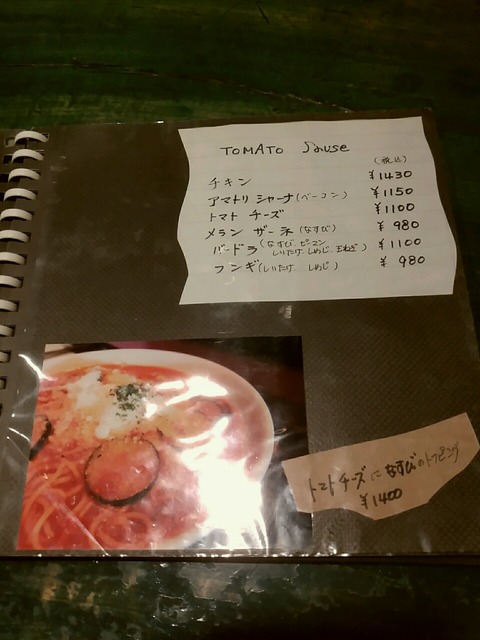 TOMATO Sause
(税込)
チキン ¥1430
アマトリシャーナ(ベーコン) ¥1150
トマト チーズ ¥1100
メランザーネ(なすび) ¥980
バードラ(なすび、ピーマン しいたけ、しめじ、玉ねぎ) ¥1100
フンギ(しいたけ しめじ) ¥980
トマトチーズになすびのトッピング
¥1400